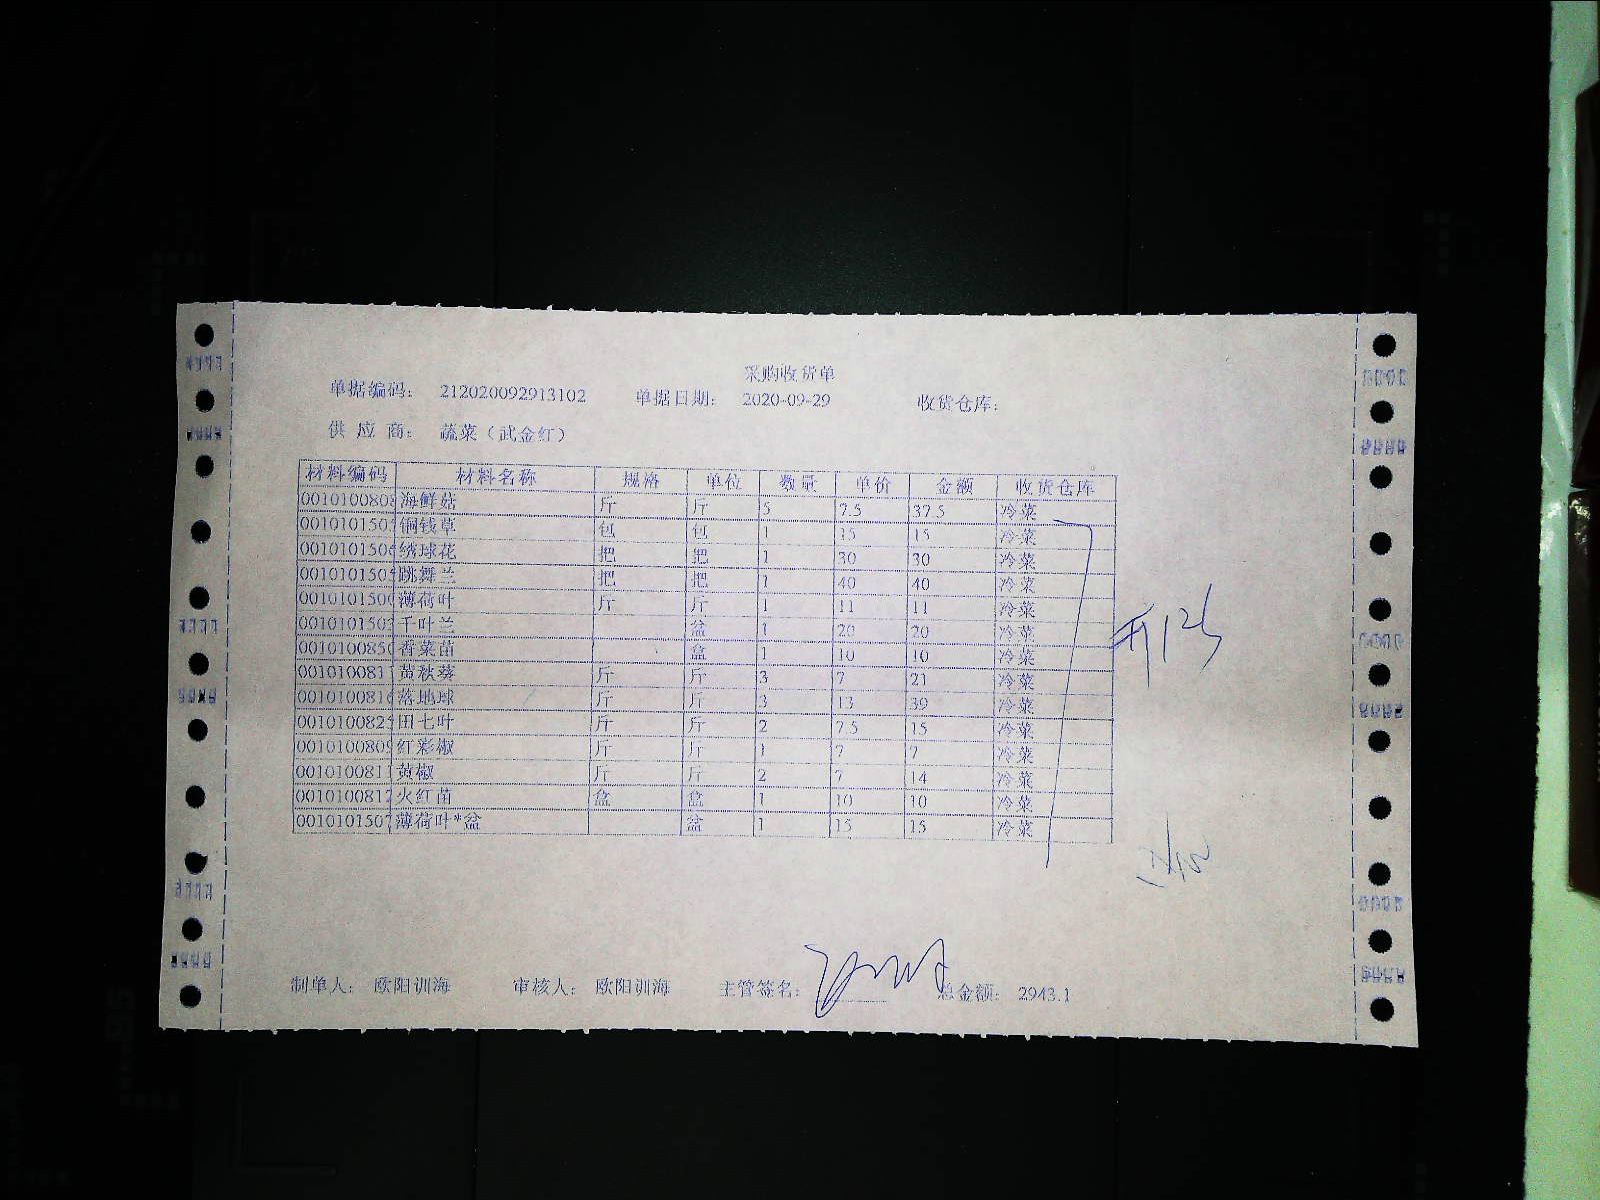 采购收货单
单据编码： 212020092913102 单据日期： 2020-09-29 收货仓库：
供 应 商： 蔬菜（武金红）
材料编码 材料名称 规格 单位 数量 单价 金额 收货仓库
001010080 海鲜菇 斤 斤 5 7.5 37.5 冷菜
001010150 铜钱草 包 包 1 15 15 冷菜
001010150 绣球花 把 把 1 30 30 冷菜
001010150 跳舞兰 把 把 1 40 40 冷菜
001010150 薄荷叶 斤 斤 1 11 11 冷菜
001010150 千叶兰 盆 1 20 20 冷菜
001010085 香菜苗 盒 1 10 10 冷菜
001010081 黄秋葵 斤 斤 3 7 21 冷菜
001010081 落地球 斤 斤 3 13 39 冷菜
001010082 田七叶 斤 斤 2 7.5 15 冷菜
001010080 红彩椒 斤 斤 1 7 7 冷菜
001010081 黄椒 斤 斤 2 7 14 冷菜
001010081 火红苗 盒 盒 1 10 10 冷菜
001010150 薄荷叶*盆 盆 1 15 15 冷菜
制单人： 欧阳训海 审核人： 欧阳训海 主管签名： 总金额： 2943.1